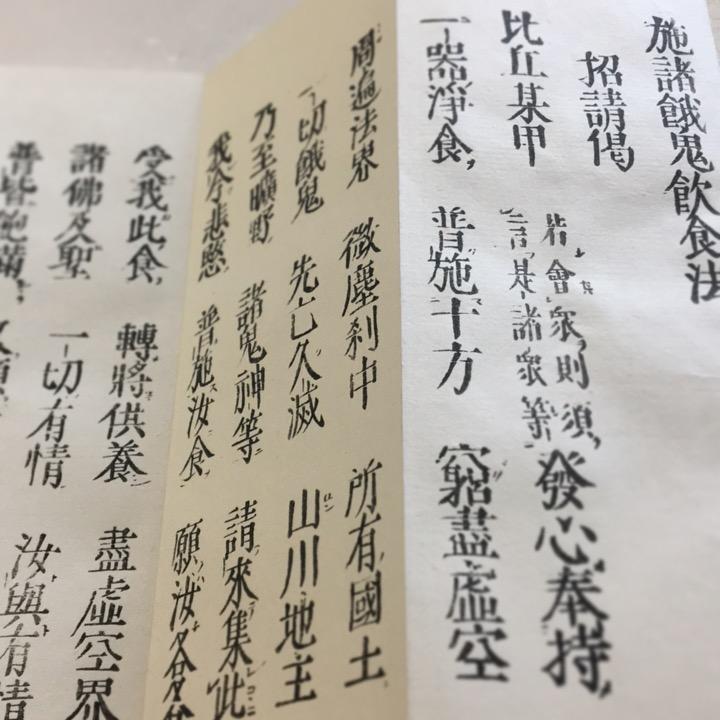 施諸餓鬼飲食法
招請偈
比丘某甲 若會衆則須言是諸衆等 發心奉持
一器淨食 普施十方 窮盡虛空
周遍法界 微塵刹中 所有國土
一切餓鬼 先亡久滅 山川地主
乃至曠野 諸鬼神等 請來集此
我今悲愍 普施汝食 願汝各各
受我此食 轉將供養 盡虛空界
諸佛及聖 一切有情 汝與有情
普皆飽滿